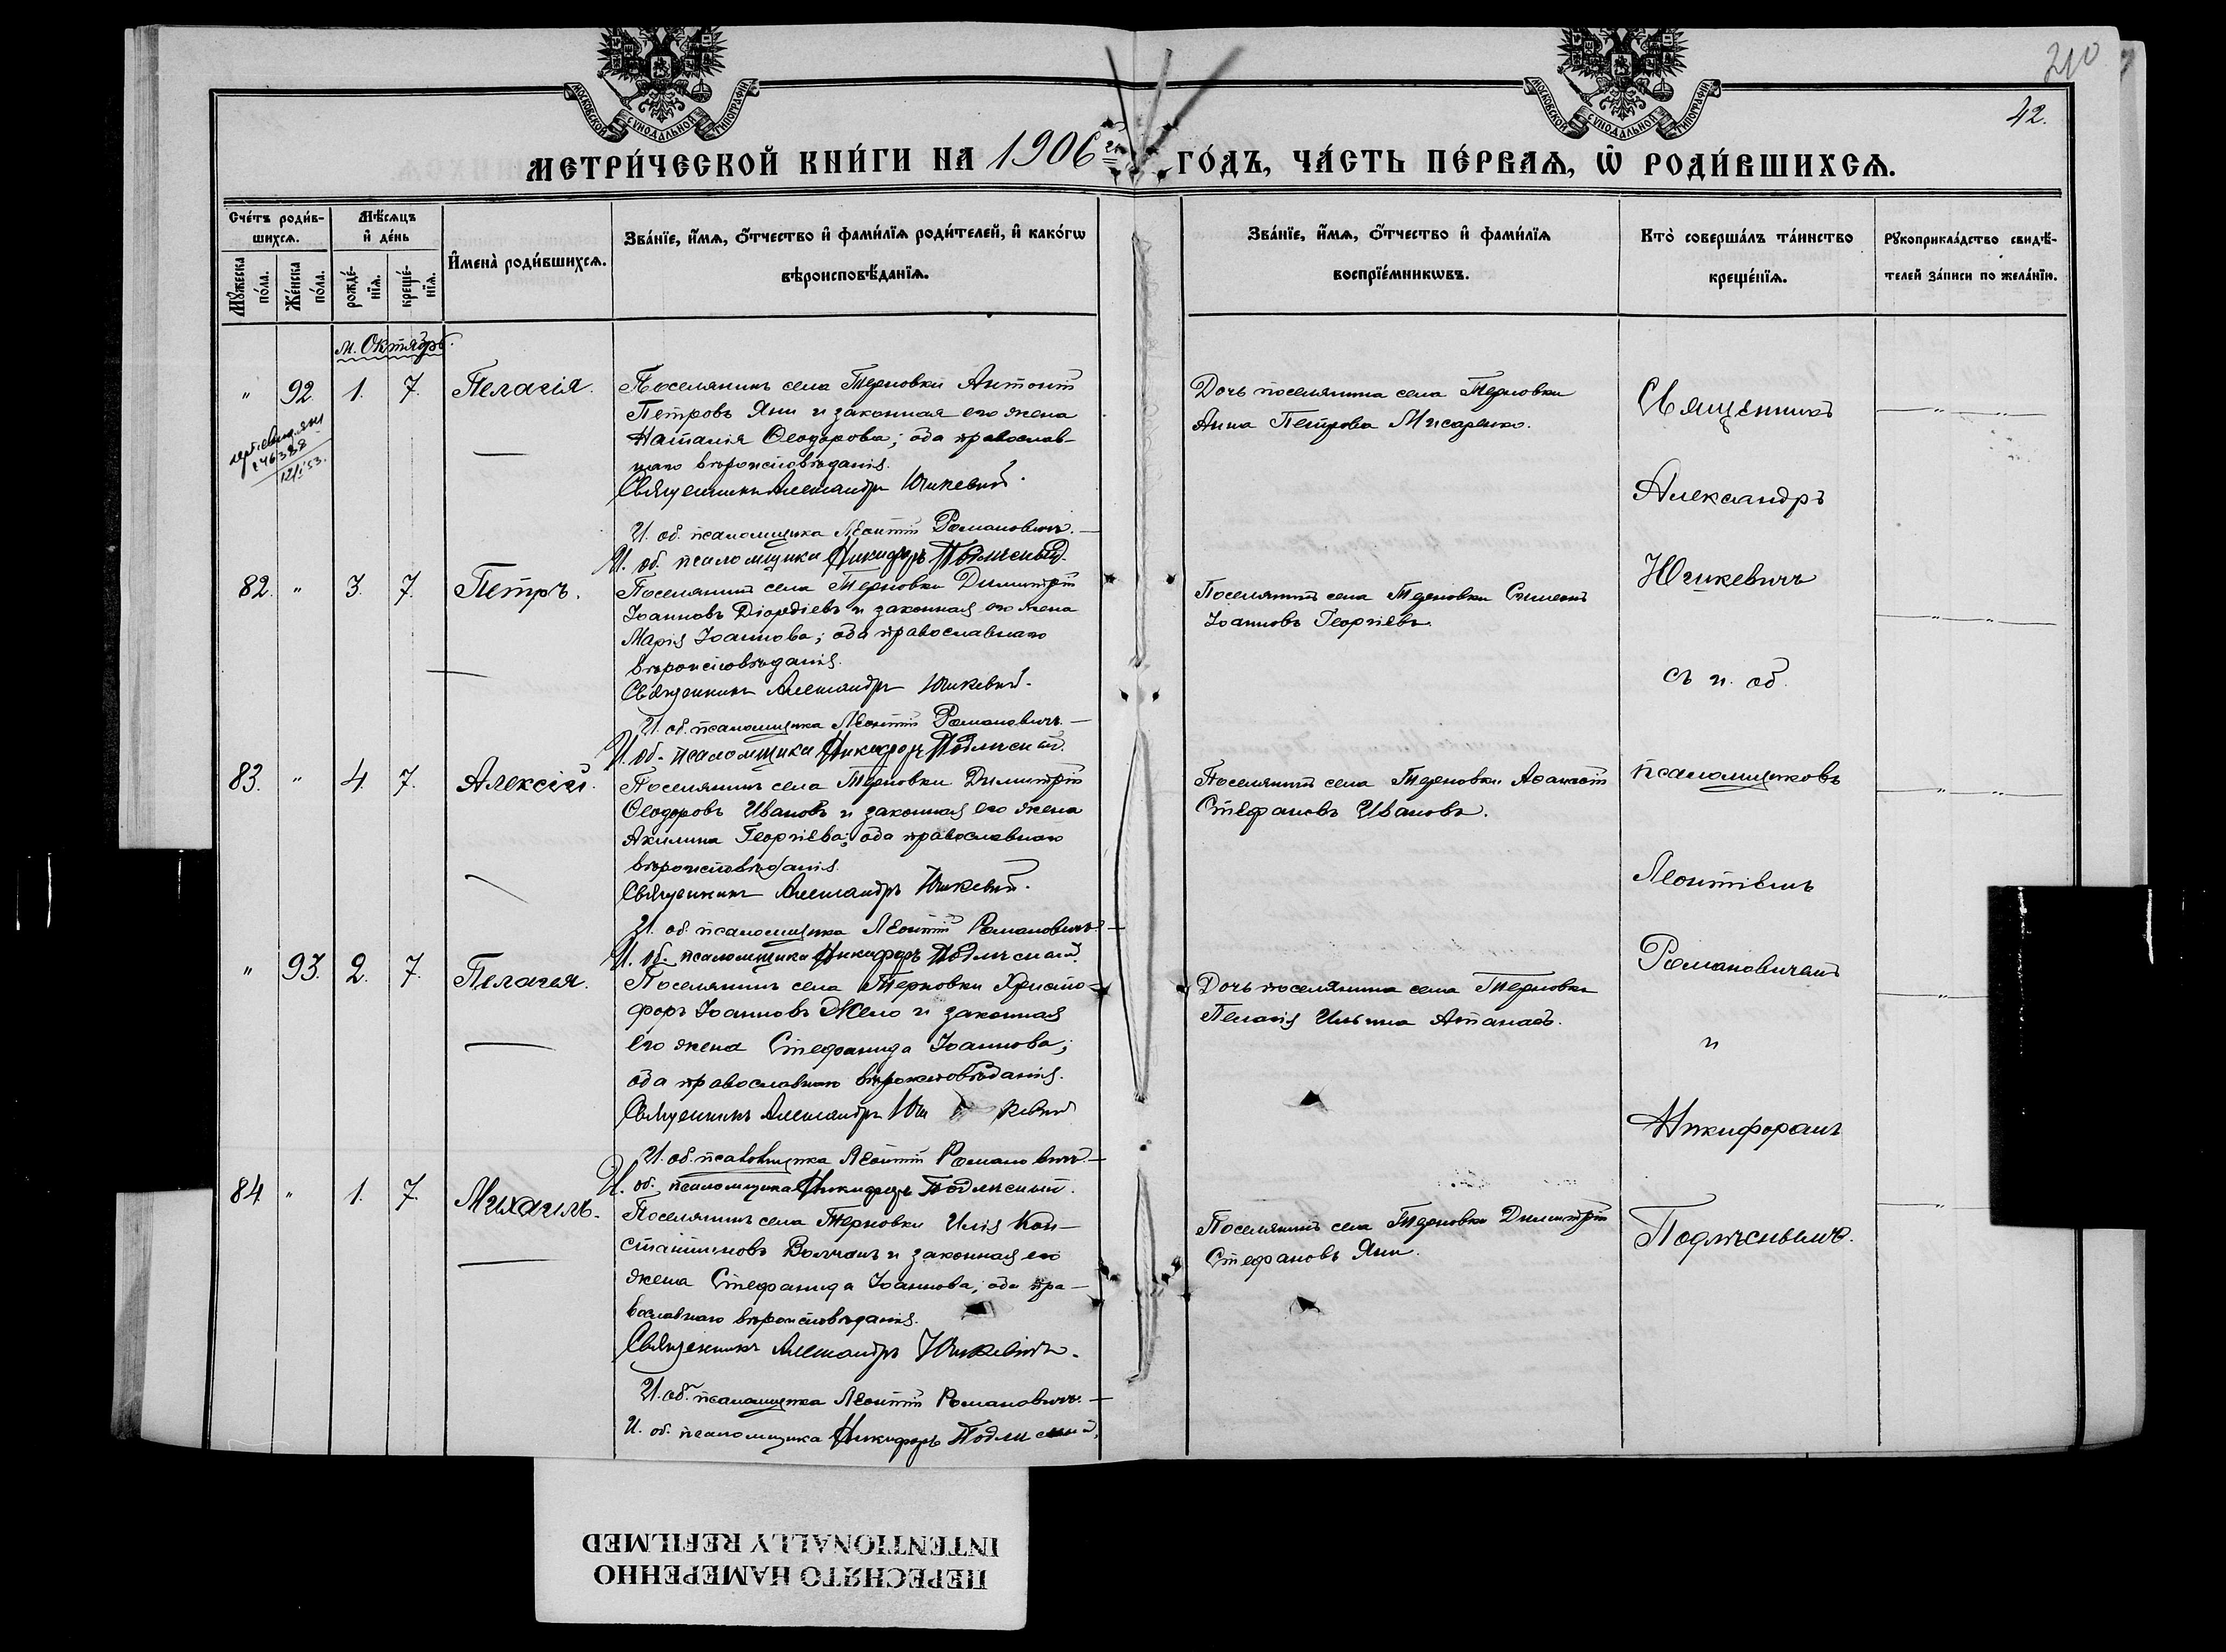 МОСКОВСКОЙ СѴНОДАЛЬНОЙ ТИПОГРАФІИ
МОСКОВСКОЙ СѴНОДАЛЬНОЙ ТИПОГРАФІИ
210
42.
МЕТРИ́ЧЕСКОЙ КНИ́ГИ НА 1906 го́дъ, ча́сть пе́рваѧ, ѽ роди́вшихсѧ.
Сче́тъ роди́в-
шихсѧ.
Мꙋ́жеска по́ла.
Же́нска по́ла.
Мѣ́сѧцъ
и҆ де́нь
рожде́-
нїѧ.
креще́-
нїѧ.
И҆мена̀ роди́вшихсѧ.
Зва́нїе, и҆́мѧ, ѻ҆́тчество и҆ фами́лїѧ роди́телей, и҆ како́гѡ
вѣроисповѣ́данїѧ.
Зва́нїе, и҆́мѧ, ѻ҆́тчество и҆ фами́лїѧ
воспрїе́мникѡвъ.
Кто̀ соверша́лъ та́инство
креще́нїѧ.
Рꙋкоприкла́дство свидѣ́-
телей за́писи по жела́нїю.
м. Октябрь.
" 92. 1. 7. Пелагія.
Поселянинъ села Терновки Антоній
Петровъ Яни и законная его жена
Наталія Ѳеодорова; оба православ-
наго вѣроисповѣданія.
Священникъ Александръ Юшкевичъ.
И. об. псаломщика Леонтій Романовичъ.
И. об. псаломщика Никифоръ Подлѣсный.
Дочь поселянина села Терновки
Анна Петрова Писаренко.
82. " 3. 7. Петръ.
Поселянинъ села Терновки Димитрій
Іоанновъ Діордіевъ и законная его жена
Марія Іоаннова; оба православнаго
вѣроисповѣданія.
Священникъ Александръ Юшкевичъ.
И. об. псаломщика Леонтій Романовичъ.
И. об. псаломщика Никифоръ Подлѣсный.
Поселянинъ села Терновки Сѵмеонъ
Іоанновъ Георгіевъ.
83. " 4. 7. Алексій.
Поселянинъ села Терновки Димитрій
Ѳеодоровъ Ивановъ и законная его жена
Акилина Георгіева; оба православнаго
вѣроисповѣданія.
Священникъ Александръ Юшкевичъ.
И. об. псаломщика Леонтій Романовичъ.
И. об. псаломщика Никифоръ Подлѣсный.
Поселянинъ села Терновки Аѳанасій
Стефановъ Ивановъ.
" 93. 2. 7. Пелагея.
Поселянинъ села Терновки Христо-
форъ Іоанновъ Жело и законная
его жена Стефанида Іоаннова;
оба православнаго вѣроисповѣданія.
Священникъ Александръ Юшкевичъ
И. об. псаломщика Леонтій Романовичъ
И. об. псаломщика Никифоръ Подлѣсный.
Дочь поселянина села Терновки
Пелагія Ильина Атанасъ.
84. " 1. 7. Михаилъ.
Поселянинъ села Терновки Илія Кон-
стантиновъ Волчанъ и законная его
жена Стефанида Іоаннова; оба пра-
вославнаго вѣроисповѣданія.
Священникъ Александръ Юшкевичъ.
И. об. псаломщика Леонтій Романовичъ.
И. об. псаломщика Никифоръ Подлѣсный.
Поселянинъ села Терновки Димитрій
Стефановъ Яни.
Священникъ
Александръ
Юшкевичъ
съ и. об.
псаломщиковъ
Леонтіемъ
Романовичемъ
и
Никифоромъ
Подлѣснымъ.
ПЕРЕСНЯТО НАМЕРЕННО
INTENTIONALLY REFILMED